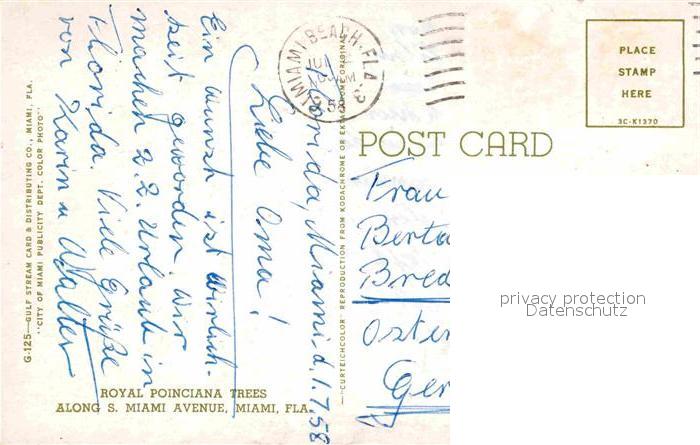 MIAMI BEACH, FLA.
58
PLACE
STAMP
HERE
3C-K1370
POST CARD
Florida, Miami d. 1.7.58
Liebe Oma!
Ein Wunsch ist wirklich-
keit geworden. Wir
machen z. Z. Urlaub in
Florida. Viele Grüße
von Karin u Walter
Frau
Berta
Bred
Oster
Ger
privacy protection
Datenschutz
ROYAL POINCIANA TREES
ALONG S. MIAMI AVENUE, MIAMI, FLA.
G-125—GULF STREAM CARD & DISTRIBUTING CO., MIAMI, FLA.
"CITY OF MIAMI PUBLICITY DEPT. COLOR PHOTO"
"CURTEICHCOLOR" REPRODUCTION FROM KODACHROME OR EKTACHROME ORIGINAL